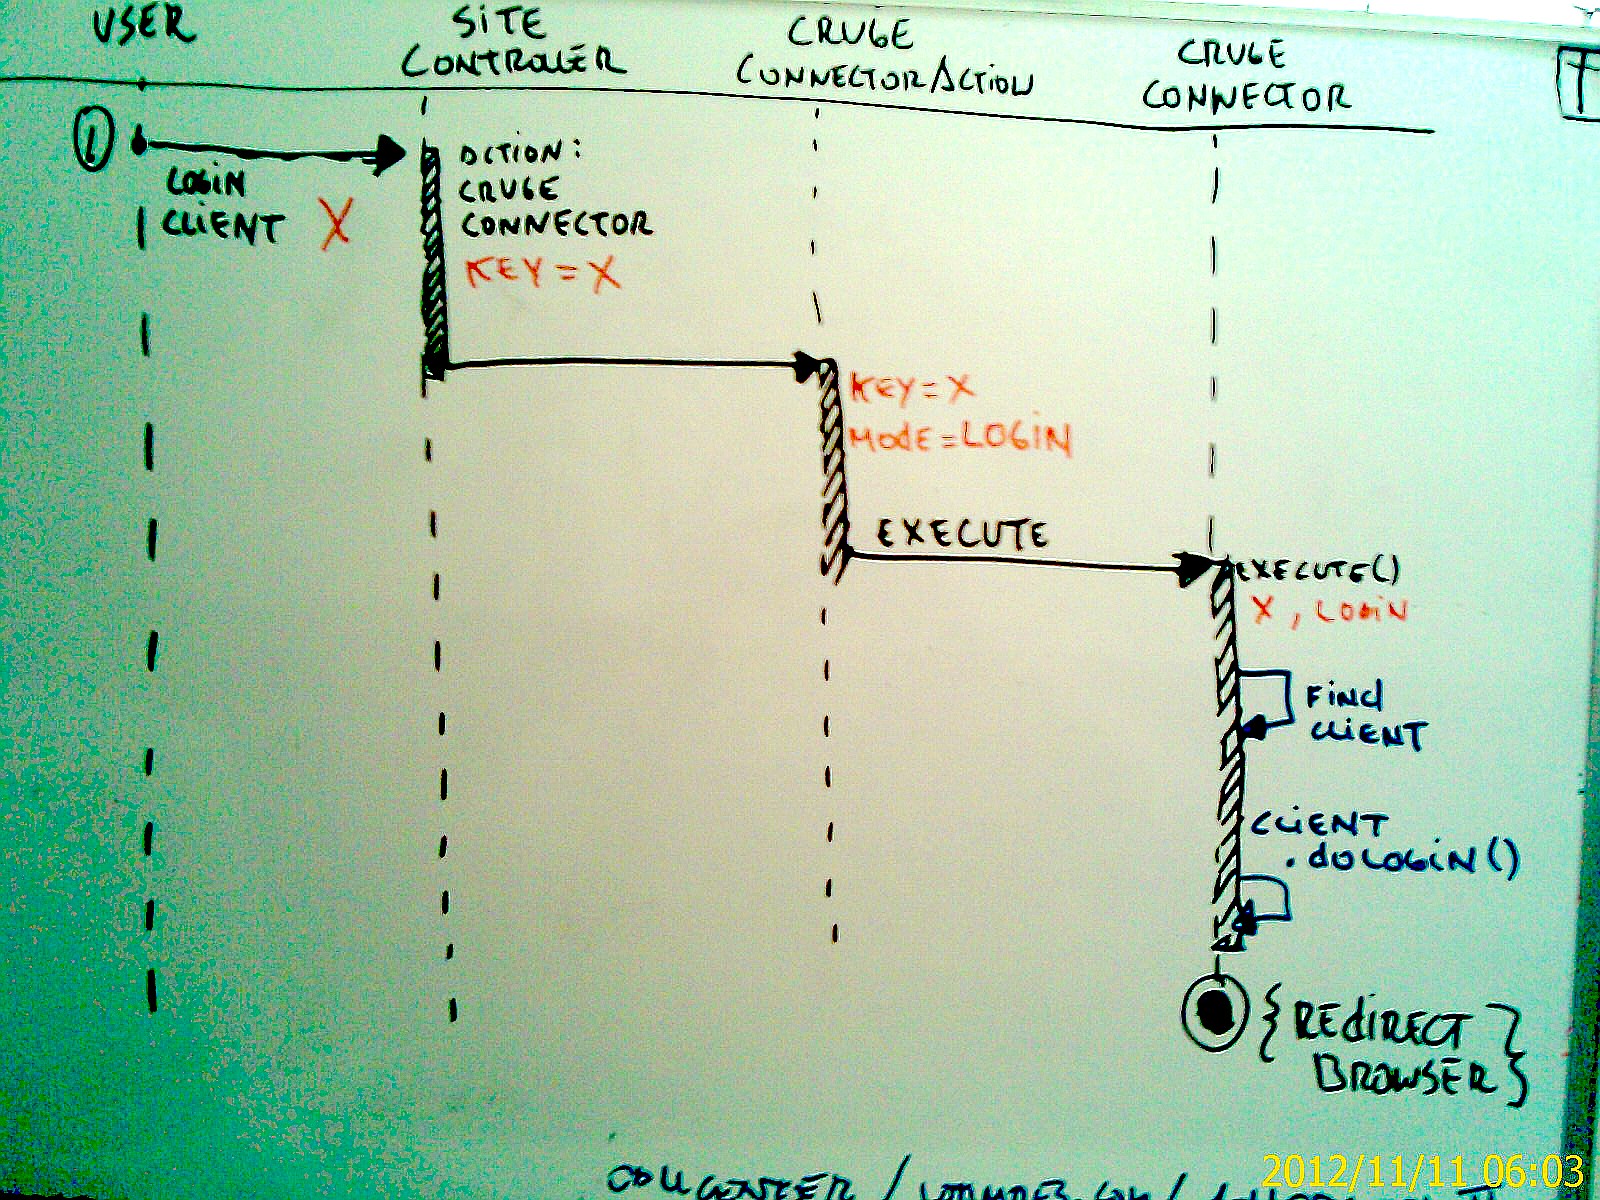 USER
SITE
CONTROLER
CRUGE
CONNECTOR/ACTION
CRUGE
CONNECTOR
1
LOGIN
CLIENT X
ACTION:
CRUGE
CONNECTOR
KEY=X
KEY=X
MODE=LOGIN
EXECUTE
EXECUTE()
X, LOGIN
FINd
CLIENT
CLIENT
.doLOGIN()
{REdIRECT
BROWSER}
2012/11/11 06:03